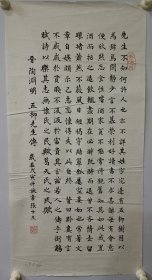 先生不知何許人也亦不詳其姓字宅邊有五柳樹因以
為號焉閑靜少言不慕榮利好讀書不求甚解每有會意
便欣然忘食性嗜酒家貧不能常得親舊知其如此或置
酒而招之造飲輒盡期在必醉既醉而退曾不吝情去留
環堵蕭然不蔽風日短褐穿結簞瓢屢空晏如也常著文
章自娛頗示己志忘懷得失以此自終贊曰黔婁有言
不戚戚於貧賤不汲汲於富貴其言茲若人之儔乎酣觴
賦詩以樂其志無懷氏之民歟葛天氏之民歟
晉陶淵明五柳先生傳